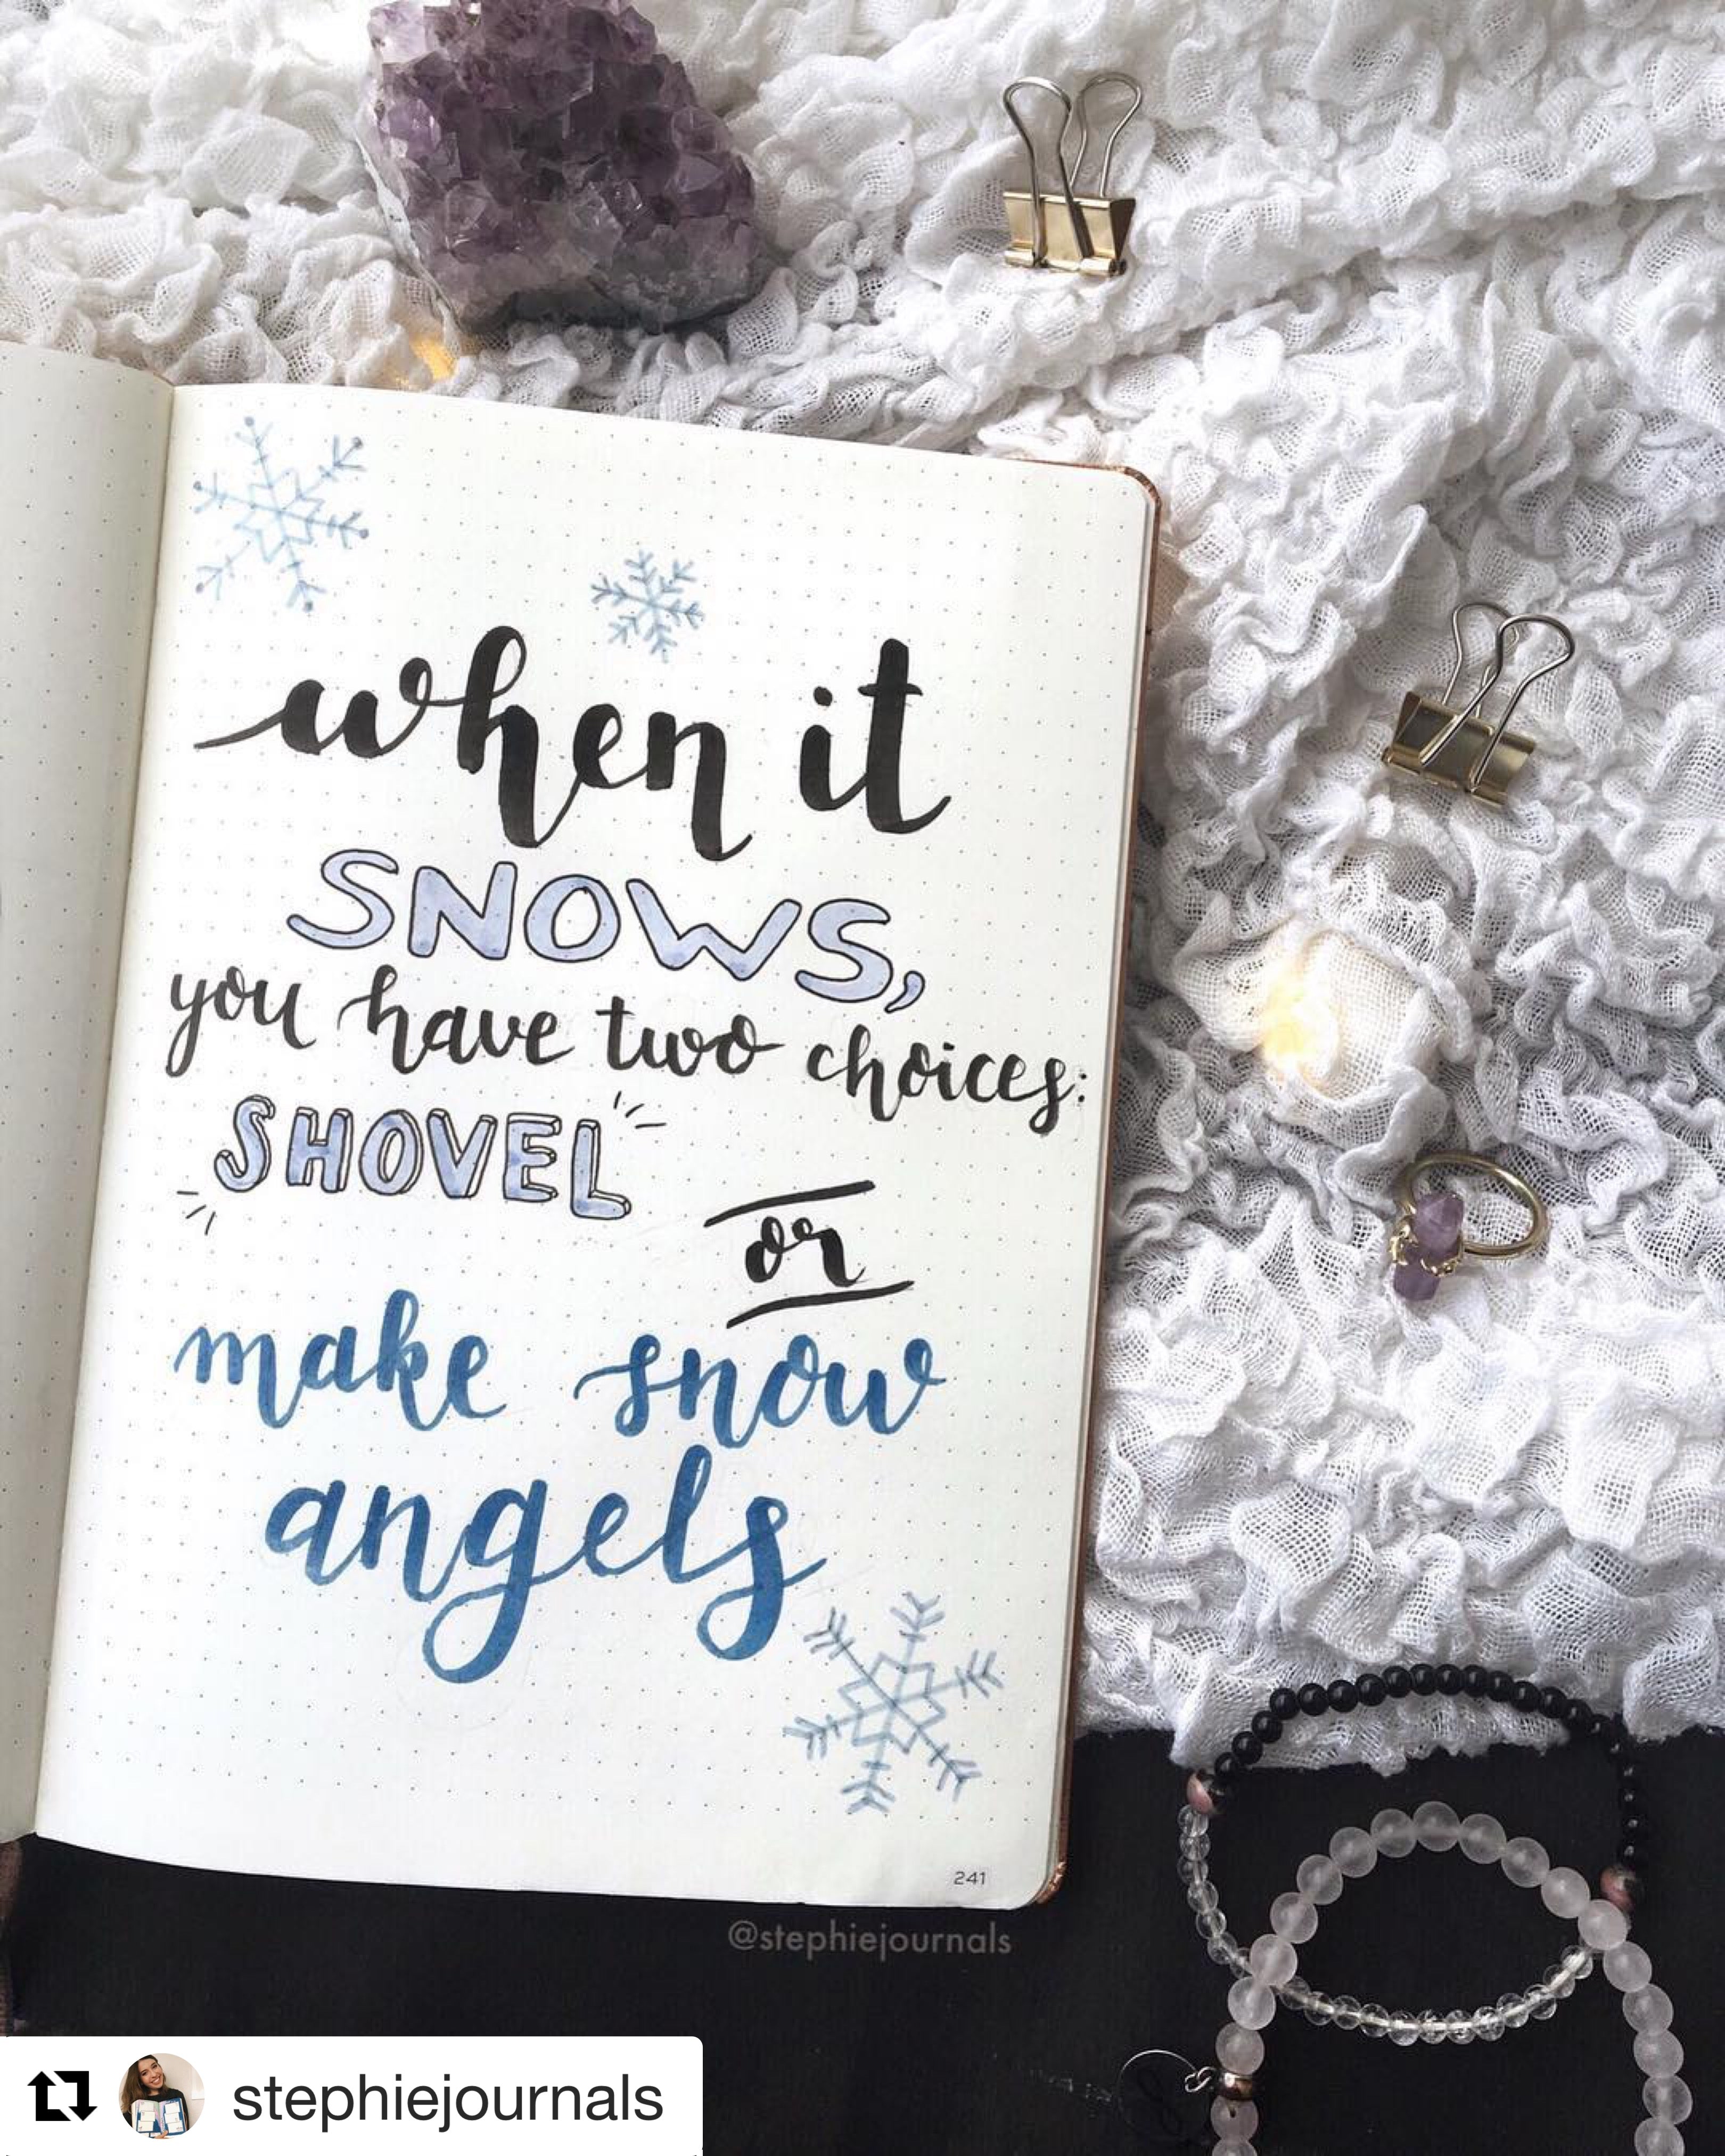 when it
SNOWS,
you have two choices:
SHOVEL
or
make snow
angels
241
@stephiejournals
stephiejournals